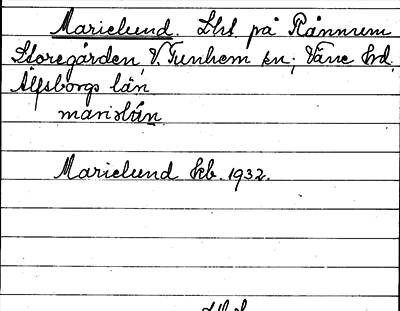 Marielund. Lht. på Rånnum
Storegården, V. Tunhem sn; Väne hd.
Älfsborgs län
Marielund kb. 1932.